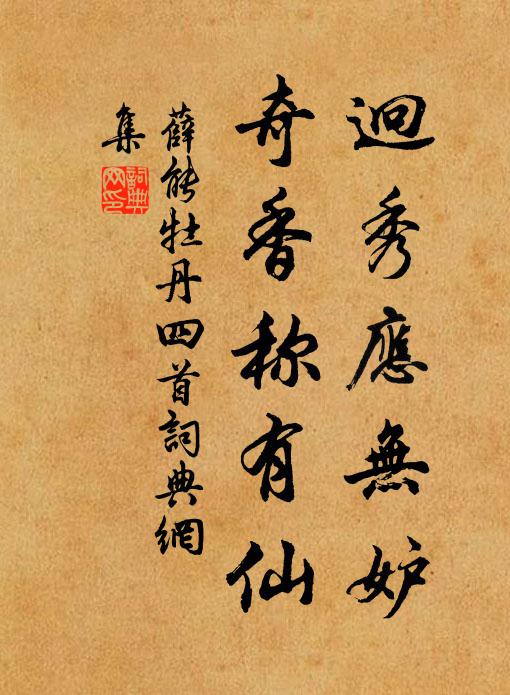 迥秀應無妒
奇香称有仙
薛能牡丹四首詞典網
集
詞典网印